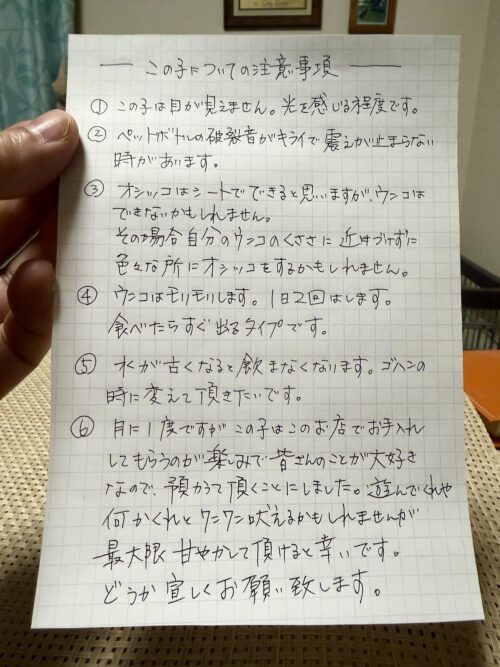 この子についての注意事項
① この子は目が見えません。光を感じる程度です。
② ペットボトルの破裂音がキライで震えが止まらない
時があります。
③ オシッコはシートでできると思いますが、ウンコは
できないかもしれません。
その場合自分のウンコのくささに近付けずに
色々な所にオシッコをするかもしれません。
④ ウンコはモリモリします。1日2回はします。
食べたらすぐ出るタイプです。
⑤ 水が古くなると飲まなくなります。ゴハンの
時に変えて頂きたいです。
⑥ 月に1度ですがこの子はこのお店でお手入れ
してもらうのが楽しみで皆さんのことが大好き
なので、預かって頂くことにしました。遊んでくれや
何かくれとワンワン吠えるかもしれませんが
最大限甘やかして頂けると幸いです。
どうか宜しくお願い致します。